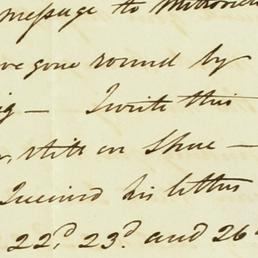 message to
ve gone round by
ig — I write this
r, still on Shore —
Received his letters
22d. 23d. and 26th